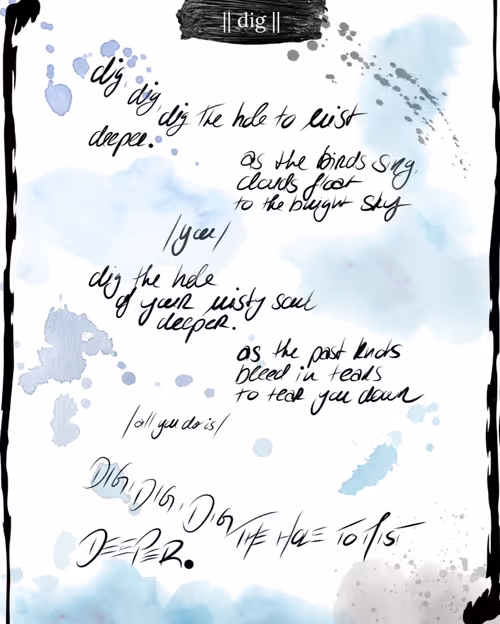 || dig ||
dig,
dig,
dig the hole to mist
deeper.
as the birds sing,
clouds float
to the bright sky
/you/
dig the hole
of your misty soul
deeper.
as the past knots
bleed in tears
to tear you down
/all you do is/
DIG,
DIG,
DIG
THE HOLE TO MIST
DEEPER.